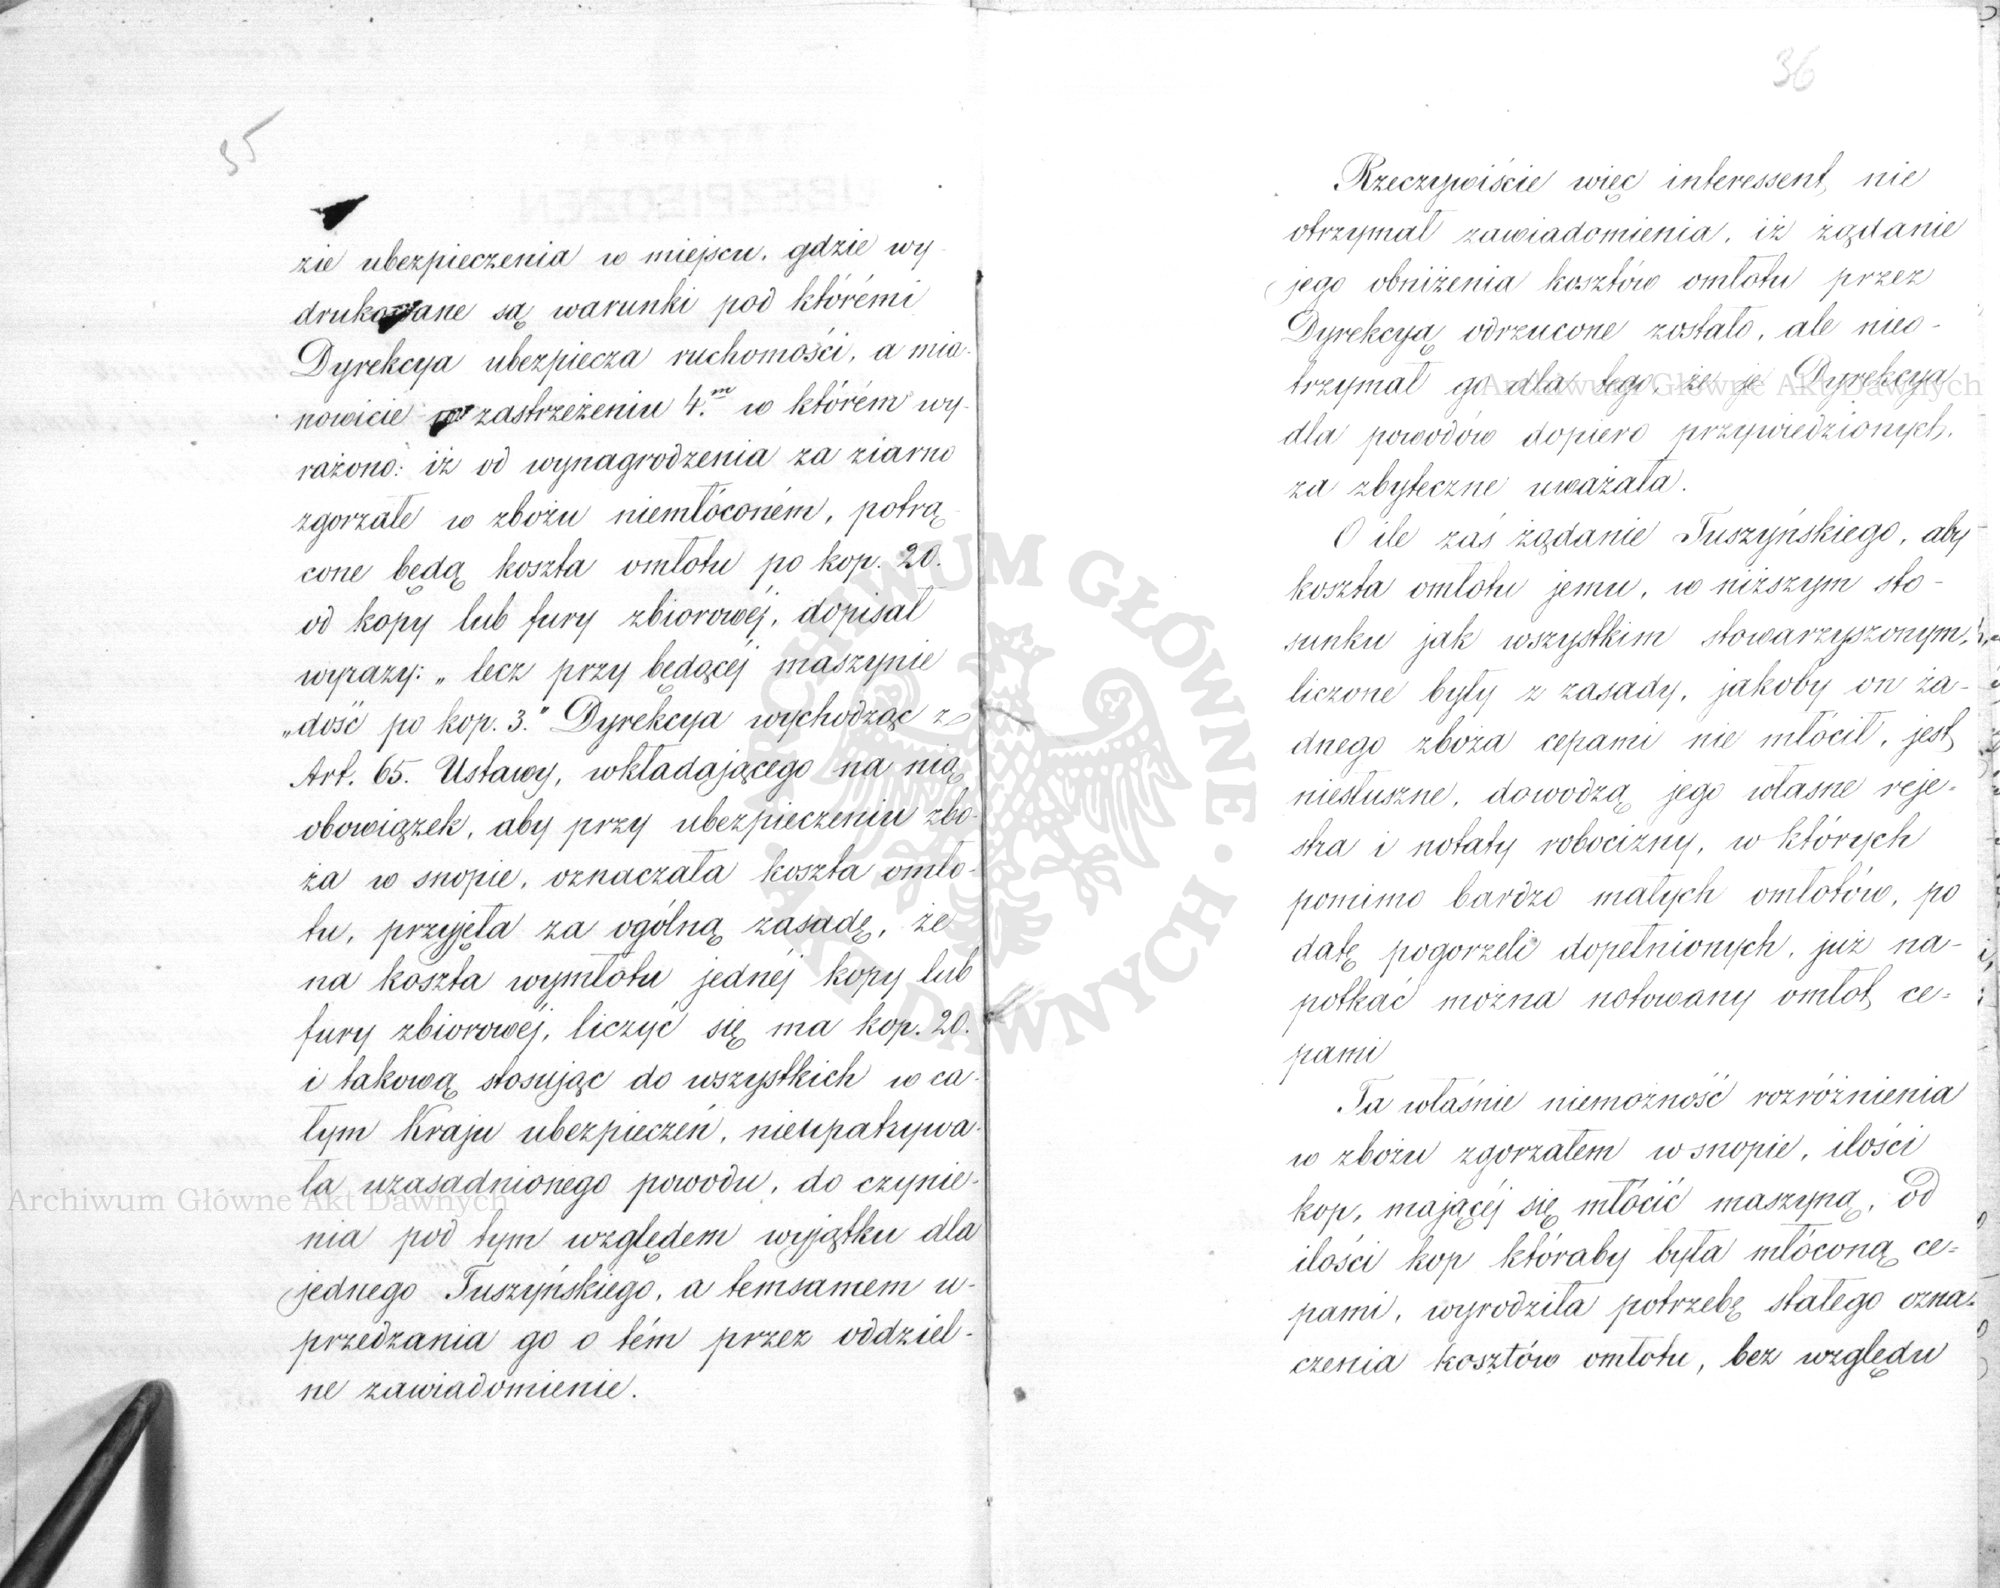 35
zie ubezpieczenia w miejscu, gdzie wy-
drukowane są warunki pod którémi
Dyrekcya ubezpiecza ruchomości, a mia-
nowicie w zastrzeżeniu 4.m w którém wy-
rażono: iż od wynagrodzenia za ziarno
zgorzałe w zbożu niemłóconém, potrą-
cone będą koszta omłotu po kop. 20.
od kopy lub fury zbiorowéj, dopisał
wyrazy: „lecz przy będącéj maszynie
„dość po kop. 3." Dyrekcya wychodząc z
Art. 65. Ustawy, wkładającego na nią
obowiązek, aby przy ubezpieczeniu zbo-
ża w snopie, oznaczała koszta omło-
tu, przyjęła za ogólną zasadę, że
na koszta wymłotu jednéj kopy lub
fury zbiorowéj, liczyć się ma kop. 20.
i takową stosując do wszystkich w ca-
łym Kraju ubezpieczeń, nieupatrywa-
ła uzasadnionego powodu, do czynie-
nia pod tym względem wyjątku dla
jednego Tuszyńskiego, a temsamem u-
przedzania go o tém przez oddziel-
ne zawiadomienie.
36
Rzeczywiście więc interessent, nie
otrzymał zawiadomienia, iż żądanie
jego obniżenia kosztów omłotu przez
Dyrekcyą odrzucone zostało, ale nieo-
trzymał go dla tego, że je Dyrekcya
dla powodów dopiero przywiedzionych,
za zbyteczne uważała.
O ile zaś żądanie Tuszyńskiego, aby
koszta omłotu jemu, w niższym sto-
sunku jak wszystkim stowarzyszonym,
liczone były z zasady, jakoby on ża-
dnego zboża cepami nie młócił, jest
niesłuszne, dowodzą jego własne reje-
stra i notaty robocizny, w których
pomimo bardzo małych omłotów, po
datę pogorzeli dopełnionych, już na-
potkać można notowany omłot ce-
pami
Ta właśnie niemożność rozróżnienia
w zbożu zgorzałem w snopie, ilości
kop, mającéj się młócić maszyną, od
ilości kop któraby była młóconą ce-
pami, wyrodziła potrzebę stałego ozna-
czenia kosztów omłotu, bez względu
Archiwum Główne Akt Dawnych
Archiwum Główne Akt Dawnych
ARCHIWUM GŁÓWNE AKT DAWNYCH